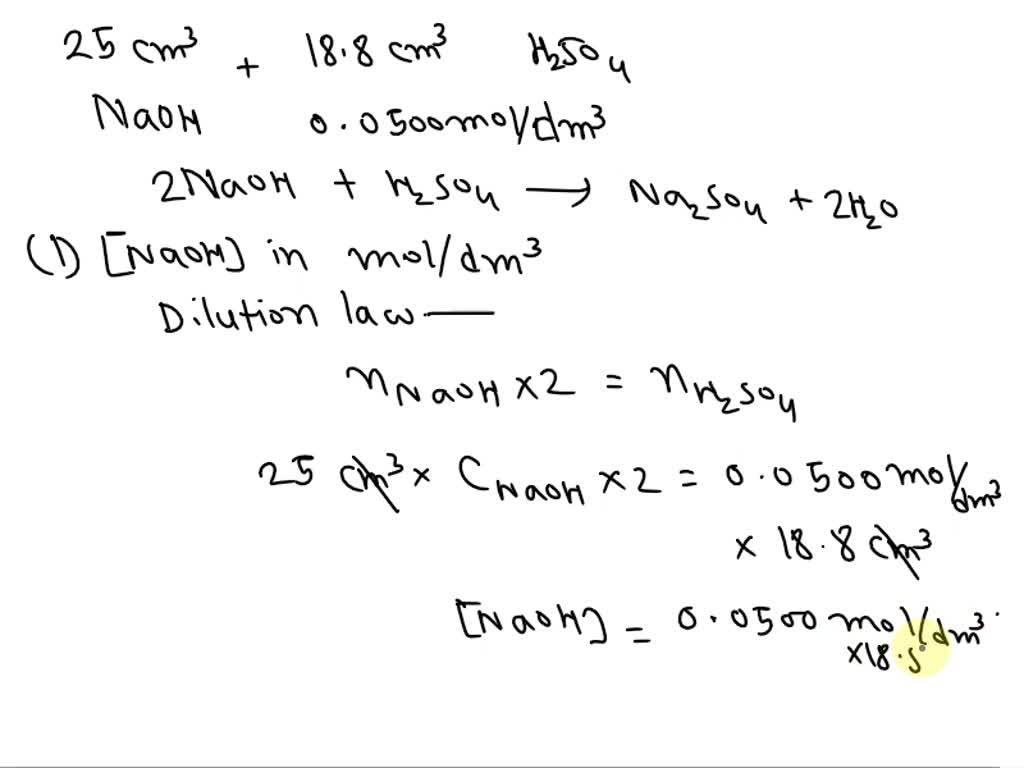 25 cm³ + 18.8 cm³ H₂SO₄
NaOH 0.0500 mol/dm³
2NaOH + H₂SO₄ → Na₂SO₄ + 2H₂O
(1) [NaOH] in mol/dm³
Dilution law —
n NaOH × 2 = n H₂SO₄
25 cm³ × C NaOH × 2 = 0.0500 mol/dm³
× 18.8 cm³
[NaOH] = 0.0500 mol/dm³
×18.